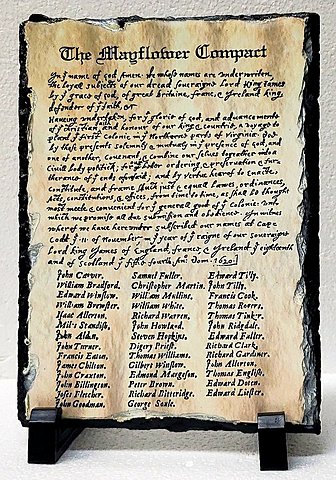 The Mayflower Compact
In y name of god Amen. we whose names are underwriten,
the loyal subjects of our dread soveraigne Lord King James
by y grace of god, of great Britaine, franc, & Yreland king,
defender of y faith, &c
Haveing undertaken, for y glorie of god, and advancemente
of y christian faith and honour of our king & countrie, a voyage to
plant y first colonie in y Northerne parts of Virginia. Doe
by these presents solemnly & mutualy in y presence of god, and
one of another, covenant, & combine our selves togeather into a
Civill body politick; for our better ordering, & preservation & fur-
therance of y ends aforesaid; and by vertue hearof to enacte,
constitute, and frame such just & equall Lawes, ordinances,
Acts, constitutions, & offices, from time to time, as shall be thought
most meete & convenient for y generall good of y Colonie: unto
which we promise all due submission and obedience. In witnes
wherof we have hereunder subscribed our names at Cape
Codd y .11. of November in y year of y raigne of our soveraigne
Lord king James of England, france, & Yreland y eighteenth
and of Scotland y fiftie fourth. Ano Dom. 1620
John Carver, Samuel Fuller, Edward Tilly,
William Bradford, Christopher Martin, John Tilly,
Edward Winslow, William Mullins, Francis Cook,
William Brewster, William White, Thomas Rogers,
Isaac Allerton, Richard Warren, Thomas Tinker,
Myles Standish, John Howland, John Ridgdale,
John Alden, Steven Hopkins, Edward Fuller,
John Turner, Digery Priest, Richard Clark,
Francis Eaton, Thomas Williams, Richard Gardiner,
James Chilton, Gilbert Winslow, John Allerton,
John Craxton, Edmond Margeson, Thomas English,
John Billington, Peter Brown, Edward Doten,
Joses Fletcher, Richard Bitteridge, Edward Liester.
John Goodman, George Soule,